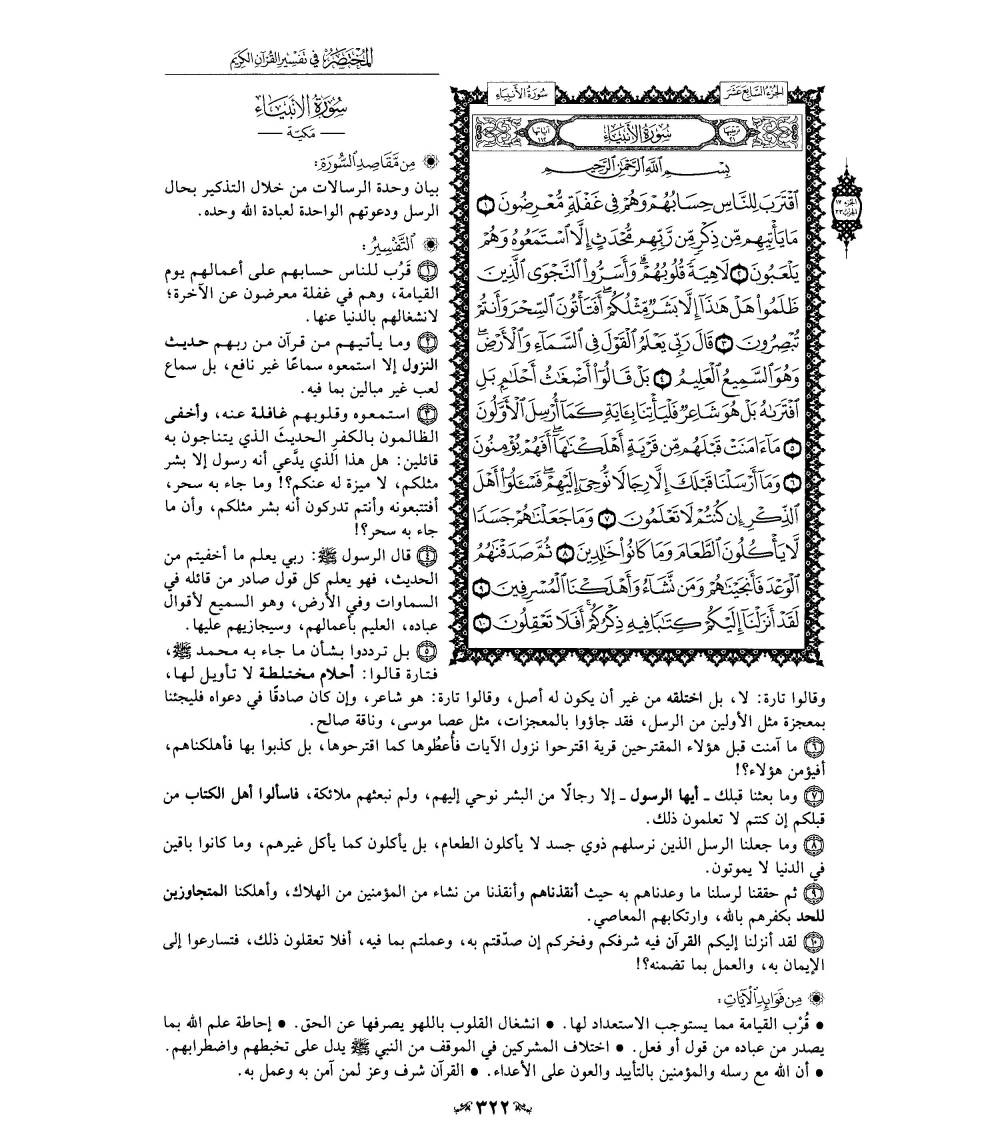 المختصر في تفسير القرآن الكريم
سورة الأنبياء
الجزء السابع عشر
سورة الأنبياء
ترتيبها ٢١
سورة الأنبياء
آياتها ١١٢
بِسْمِ اللَّهِ الرَّحْمَٰنِ الرَّحِيمِ
اقْتَرَبَ لِلنَّاسِ حِسَابُهُمْ وَهُمْ فِي غَفْلَةٍ مُّعْرِضُونَ ١
مَا يَأْتِيهِم مِّن ذِكْرٍ مِّن رَّبِّهِم مُّحْدَثٍ إِلَّا اسْتَمَعُوهُ وَهُمْ
يَلْعَبُونَ ٢ لَاهِيَةً قُلُوبُهُمْ ۗ وَأَسَرُّوا النَّجْوَى الَّذِينَ
ظَلَمُوا هَلْ هَٰذَا إِلَّا بَشَرٌ مِّثْلُكُمْ ۖ أَفَتَأْتُونَ السِّحْرَ وَأَنتُمْ
تُبْصِرُونَ ٣ قَالَ رَبِّي يَعْلَمُ الْقَوْلَ فِي السَّمَاءِ وَالْأَرْضِ ۖ
وَهُوَ السَّمِيعُ الْعَلِيمُ ٤ بَلْ قَالُوا أَضْغَاثُ أَحْلَامٍ بَلِ
افْتَرَاهُ بَلْ هُوَ شَاعِرٌ فَلْيَأْتِنَا بِآيَةٍ كَمَا أُرْسِلَ الْأَوَّلُونَ
٥ مَا آمَنَتْ قَبْلَهُم مِّن قَرْيَةٍ أَهْلَكْنَاهَا ۖ أَفَهُمْ يُؤْمِنُونَ
٦ وَمَا أَرْسَلْنَا قَبْلَكَ إِلَّا رِجَالًا نُّوحِي إِلَيْهِمْ ۖ فَسْـَٔلُوا أَهْلَ
الذِّكْرِ إِن كُنتُمْ لَا تَعْلَمُونَ ٧ وَمَا جَعَلْنَاهُمْ جَسَدًا
لَّا يَأْكُلُونَ الطَّعَامَ وَمَا كَانُوا خَالِدِينَ ٨ ثُمَّ صَدَقْنَاهُمُ
الْوَعْدَ فَأَنجَيْنَاهُمْ وَمَن نَّشَاءُ وَأَهْلَكْنَا الْمُسْرِفِينَ ٩
لَقَدْ أَنزَلْنَا إِلَيْكُمْ كِتَابًا فِيهِ ذِكْرُكُمْ ۖ أَفَلَا تَعْقِلُونَ ١٠
سورة الأنبياء
— مكية —
من مقاصد السورة:
بيان وحدة الرسالات من خلال التذكير بحال
الرسل ودعوتهم الواحدة لعبادة الله وحده.
التفسير:
١ قَرُب للناس حسابهم على أعمالهم يوم
القيامة، وهم في غفلة معرضون عن الآخرة؛
لانشغالهم بالدنيا عنها.
٢ وما يأتيهم من قرآن من ربهم حديث
النزول إلا استمعوه سماعًا غير نافع، بل سماع
لعب غير مبالين بما فيه.
٣ استمعوه وقلوبهم غافلة عنه، وأخفى
الظالمون بالكفر الحديثَ الذي يتناجون به
قائلين: هل هذا الذي يدَّعي أنه رسول إلا بشر
مثلكم، لا ميزة له عنكم؟! وما جاء به سحر،
أفتتبعونه وأنتم تدركون أنه بشر مثلكم، وأن ما
جاء به سحر؟!
٤ قال الرسول ﷺ: ربي يعلم ما أخفيتم من
الحديث، فهو يعلم كل قول صادر من قائله في
السماوات وفي الأرض، وهو السميع لأقوال
عباده، العليم بأعمالهم، وسيجازيهم عليها.
٥ بل ترددوا بشأن ما جاء به محمد ﷺ،
فتارة قالوا: أحلام مختلطة لا تأويل لها،
وقالوا تارة: لا، بل اختلقه من غير أن يكون له أصل، وقالوا تارة: هو شاعر، وإن كان صادقًا في دعواه فليجئنا
بمعجزة مثل الأولين من الرسل، فقد جاؤوا بالمعجزات، مثل عصا موسى، وناقة صالح.
٦ ما آمنت قبل هؤلاء المقترحين قرية اقترحوا نزول الآيات فأُعطُوها كما اقترحوها، بل كذبوا بها فأهلكناهم،
أفيؤمن هؤلاء؟!
٧ وما بعثنا قبلك ـ أيها الرسول ـ إلا رجالًا من البشر نوحي إليهم، ولم نبعثهم ملائكة، فاسألوا أهل الكتاب من
قبلكم إن كنتم لا تعلمون ذلك.
٨ وما جعلنا الرسل الذين نرسلهم ذوي جسد لا يأكلون الطعام، بل يأكلون كما يأكل غيرهم، وما كانوا باقين
في الدنيا لا يموتون.
٩ ثم حققنا لرسلنا ما وعدناهم به حيث أنقذناهم وأنقذنا من نشاء من المؤمنين من الهلاك، وأهلكنا المتجاوزين
للحد بكفرهم بالله، وارتكابهم المعاصي.
١٠ لقد أنزلنا إليكم القرآن فيه شرفكم وفخركم إن صدّقتم به، وعملتم بما فيه، أفلا تعقلون ذلك، فتسارعوا إلى
الإيمان به، والعمل بما تضمنه؟!
من فوائد الآيات:
• قُرْب القيامة مما يستوجب الاستعداد لها. • انشغال القلوب باللهو يصرفها عن الحق. • إحاطة علم الله بما
يصدر من عباده من قول أو فعل. • اختلاف المشركين في الموقف من النبي ﷺ يدل على تخبطهم واضطرابهم.
• أن الله مع رسله والمؤمنين بالتأييد والعون على الأعداء. • القرآن شرف وعز لمن آمن به وعمل به.
٣٢٢